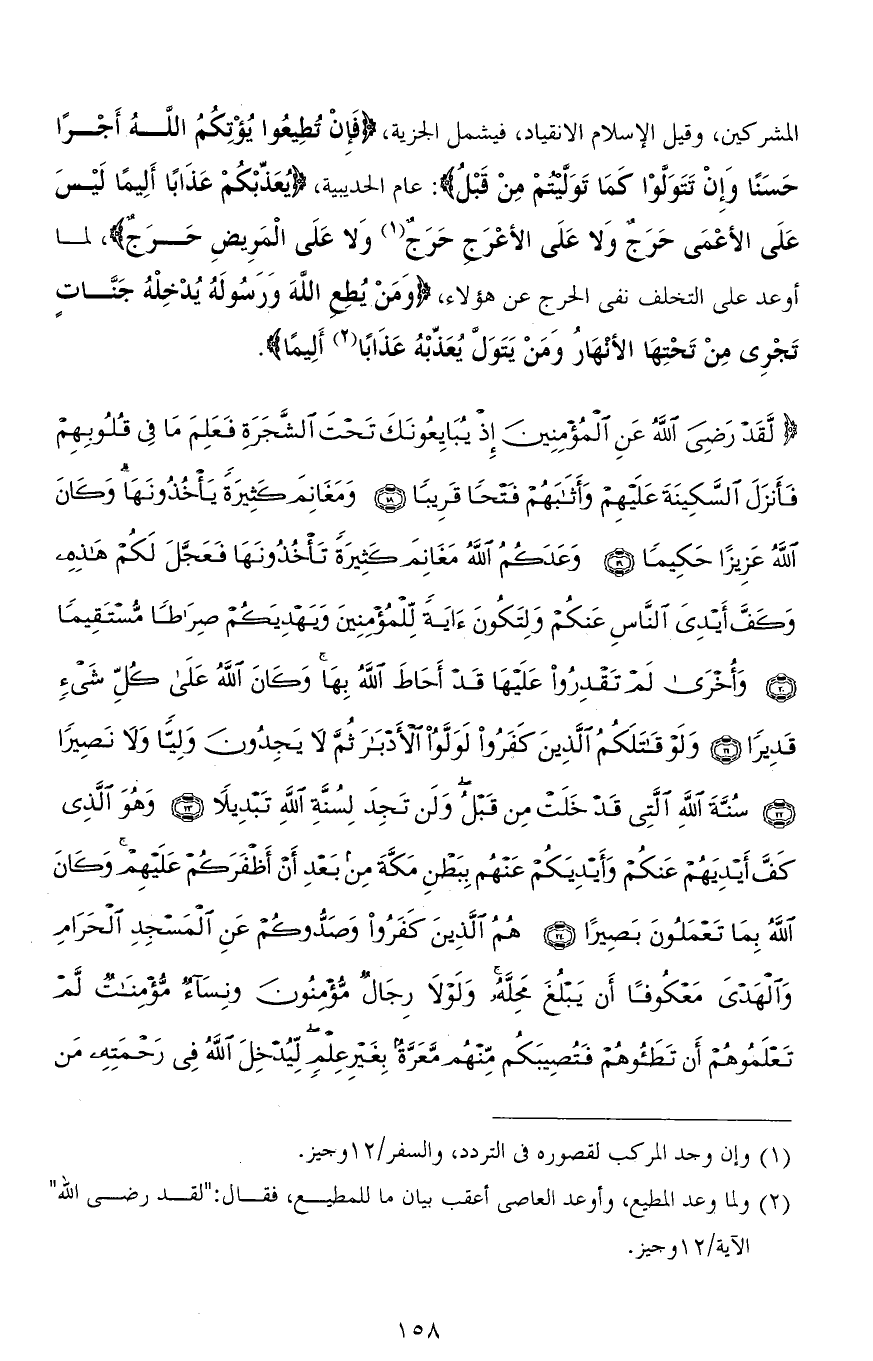 المشركين، وقيل الإسلام الانقياد، فيشمل الجزية، ﴿فَإِنْ تُطِيعُوا يُؤْتِكُمُ اللَّهُ أَجْرًا
حَسَنًا وَإِنْ تَتَوَلَّوْا كَمَا تَوَلَّيْتُمْ مِنْ قَبْلُ﴾: عام الحديبية، ﴿يُعَذِّبْكُمْ عَذَابًا أَلِيمًا لَيْسَ
عَلَى الأَعْمَى حَرَجٌ وَلا عَلَى الأَعْرَجِ حَرَجٌ(١) وَلا عَلَى الْمَرِيضِ حَرَجٌ﴾، لما
أوعد على التخلف نفى الحرج عن هؤلاء، ﴿وَمَنْ يُطِعِ اللَّهَ وَرَسُولَهُ يُدْخِلْهُ جَنَّاتٍ
تَجْرِى مِنْ تَحْتِهَا الأَنْهَارُ وَمَنْ يَتَوَلَّ يُعَذِّبْهُ عَذَابًا(٢) أَلِيمًا﴾.
﴿ لَّقَدْ رَضِىَ ٱللَّهُ عَنِ ٱلْمُؤْمِنِينَ إِذْ يُبَايِعُونَكَ تَحْتَ ٱلشَّجَرَةِ فَعَلِمَ مَا فِى قُلُوبِهِمْ
فَأَنزَلَ ٱلسَّكِينَةَ عَلَيْهِمْ وَأَثَـٰبَهُمْ فَتْحًا قَرِيبًا ١٨ وَمَغَانِمَ كَثِيرَةً يَأْخُذُونَهَا ۗ وَكَانَ
ٱللَّهُ عَزِيزًا حَكِيمًا ١٩ وَعَدَكُمُ ٱللَّهُ مَغَانِمَ كَثِيرَةً تَأْخُذُونَهَا فَعَجَّلَ لَكُمْ هَـٰذِهِۦ
وَكَفَّ أَيْدِىَ ٱلنَّاسِ عَنكُمْ وَلِتَكُونَ ءَايَةً لِّلْمُؤْمِنِينَ وَيَهْدِيَكُمْ صِرَٰطًا مُّسْتَقِيمًا
٢٠ وَأُخْرَىٰ لَمْ تَقْدِرُوا۟ عَلَيْهَا قَدْ أَحَاطَ ٱللَّهُ بِهَا ۚ وَكَانَ ٱللَّهُ عَلَىٰ كُلِّ شَىْءٍ
قَدِيرًا ٢١ وَلَوْ قَـٰتَلَكُمُ ٱلَّذِينَ كَفَرُوا۟ لَوَلَّوُا۟ ٱلْأَدْبَـٰرَ ثُمَّ لَا يَجِدُونَ وَلِيًّا وَلَا نَصِيرًا
٢٢ سُنَّةَ ٱللَّهِ ٱلَّتِى قَدْ خَلَتْ مِن قَبْلُ ۖ وَلَن تَجِدَ لِسُنَّةِ ٱللَّهِ تَبْدِيلًا ٢٣ وَهُوَ ٱلَّذِى
كَفَّ أَيْدِيَهُمْ عَنكُمْ وَأَيْدِيَكُمْ عَنْهُم بِبَطْنِ مَكَّةَ مِنۢ بَعْدِ أَنْ أَظْفَرَكُمْ عَلَيْهِمْ ۚ وَكَانَ
ٱللَّهُ بِمَا تَعْمَلُونَ بَصِيرًا ٢٤ هُمُ ٱلَّذِينَ كَفَرُوا۟ وَصَدُّوكُمْ عَنِ ٱلْمَسْجِدِ ٱلْحَرَامِ
وَٱلْهَدْىَ مَعْكُوفًا أَن يَبْلُغَ مَحِلَّهُۥ ۚ وَلَوْلَا رِجَالٌ مُّؤْمِنُونَ وَنِسَآءٌ مُّؤْمِنَـٰتٌ لَّمْ
تَعْلَمُوهُمْ أَن تَطَـُٔوهُمْ فَتُصِيبَكُم مِّنْهُم مَّعَرَّةٌۢ بِغَيْرِ عِلْمٍ ۖ لِّيُدْخِلَ ٱللَّهُ فِى رَحْمَتِهِۦ مَن
(١) وإن وجد المركب لقصوره فى التردد، والسفر/١٢وجيز.
(٢) ولما وعد المطيع، وأوعد العاصى أعقب بيان ما للمطيع، فقال:"لقد رضى الله"
الآية/١٢وجيز.
١٥٨